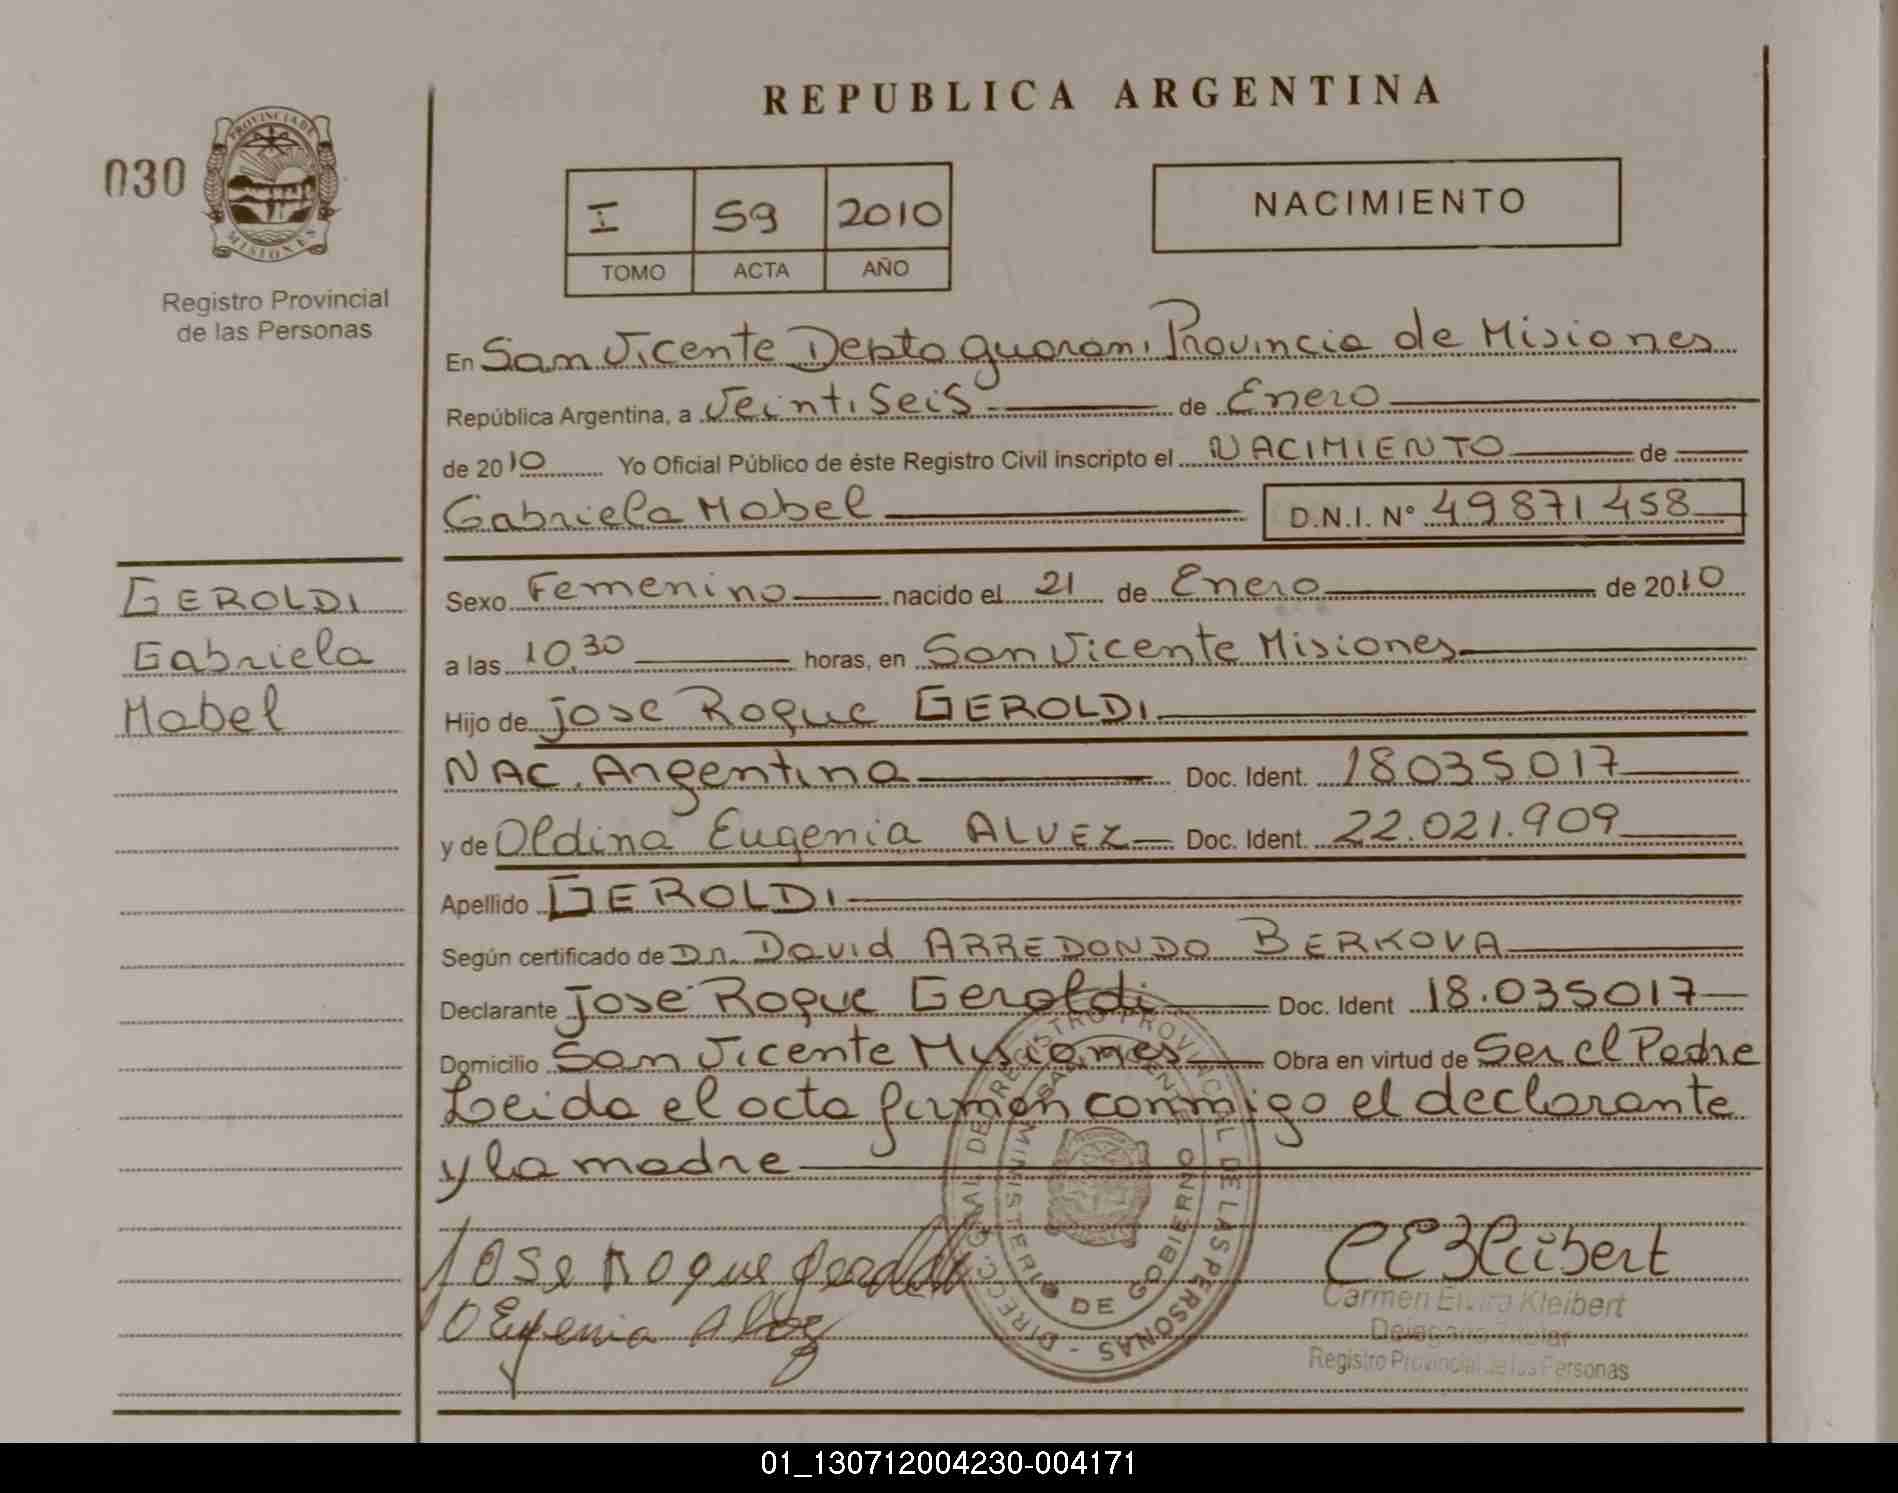 REPUBLICA ARGENTINA
030
PROVINCIA DE
MISIONES
Registro Provincial
de las Personas
I 59 2010
TOMO ACTA AÑO
NACIMIENTO
En San Vicente Depto guarani Provincia de Misiones
República Argentina, a Veinti Seis de Enero
de 2010 Yo Oficial Público de éste Registro Civil inscripto el NACIMIENTO de
Gabriela Mabel D.N.I. N° 49871458
GEROLDI
Gabriela
Mabel
Sexo Femenino nacido el 21 de Enero de 2010
a las 10,30 horas, en San Vicente Misiones
Hijo de jose Roque GEROLDI
NAC. Argentina Doc. Ident. 18035017
y de Oldina Eugenia ALVEZ Doc. Ident. 22.021.909
Apellido GEROLDI
Según certificado de Dr. David ARREDONDO BERKOVA
Declarante jose Roque Geroldi Doc. Ident 18.035017
Domicilio San Vicente Misiones Obra en virtud de Ser el Padre
Leida el acta firman conmigo el declarante
y la madre
Jose Roque Geroldi
O Eugenia Alvez
DIRECC. GRAL DE REGISTRO PROVINCIAL DE LAS PERSONAS -
MINISTERIO DE GOBIERNO
SAN VICENTE
CEKleibert
Carmen Elvira Kleibert
Registro Provincial de las Personas
01_130712004230-004171